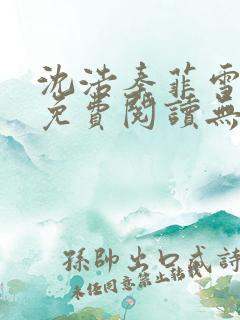 沈浩秦菲雪
免費閱讀無
孫帥出口成詩
未經同意禁止轉載